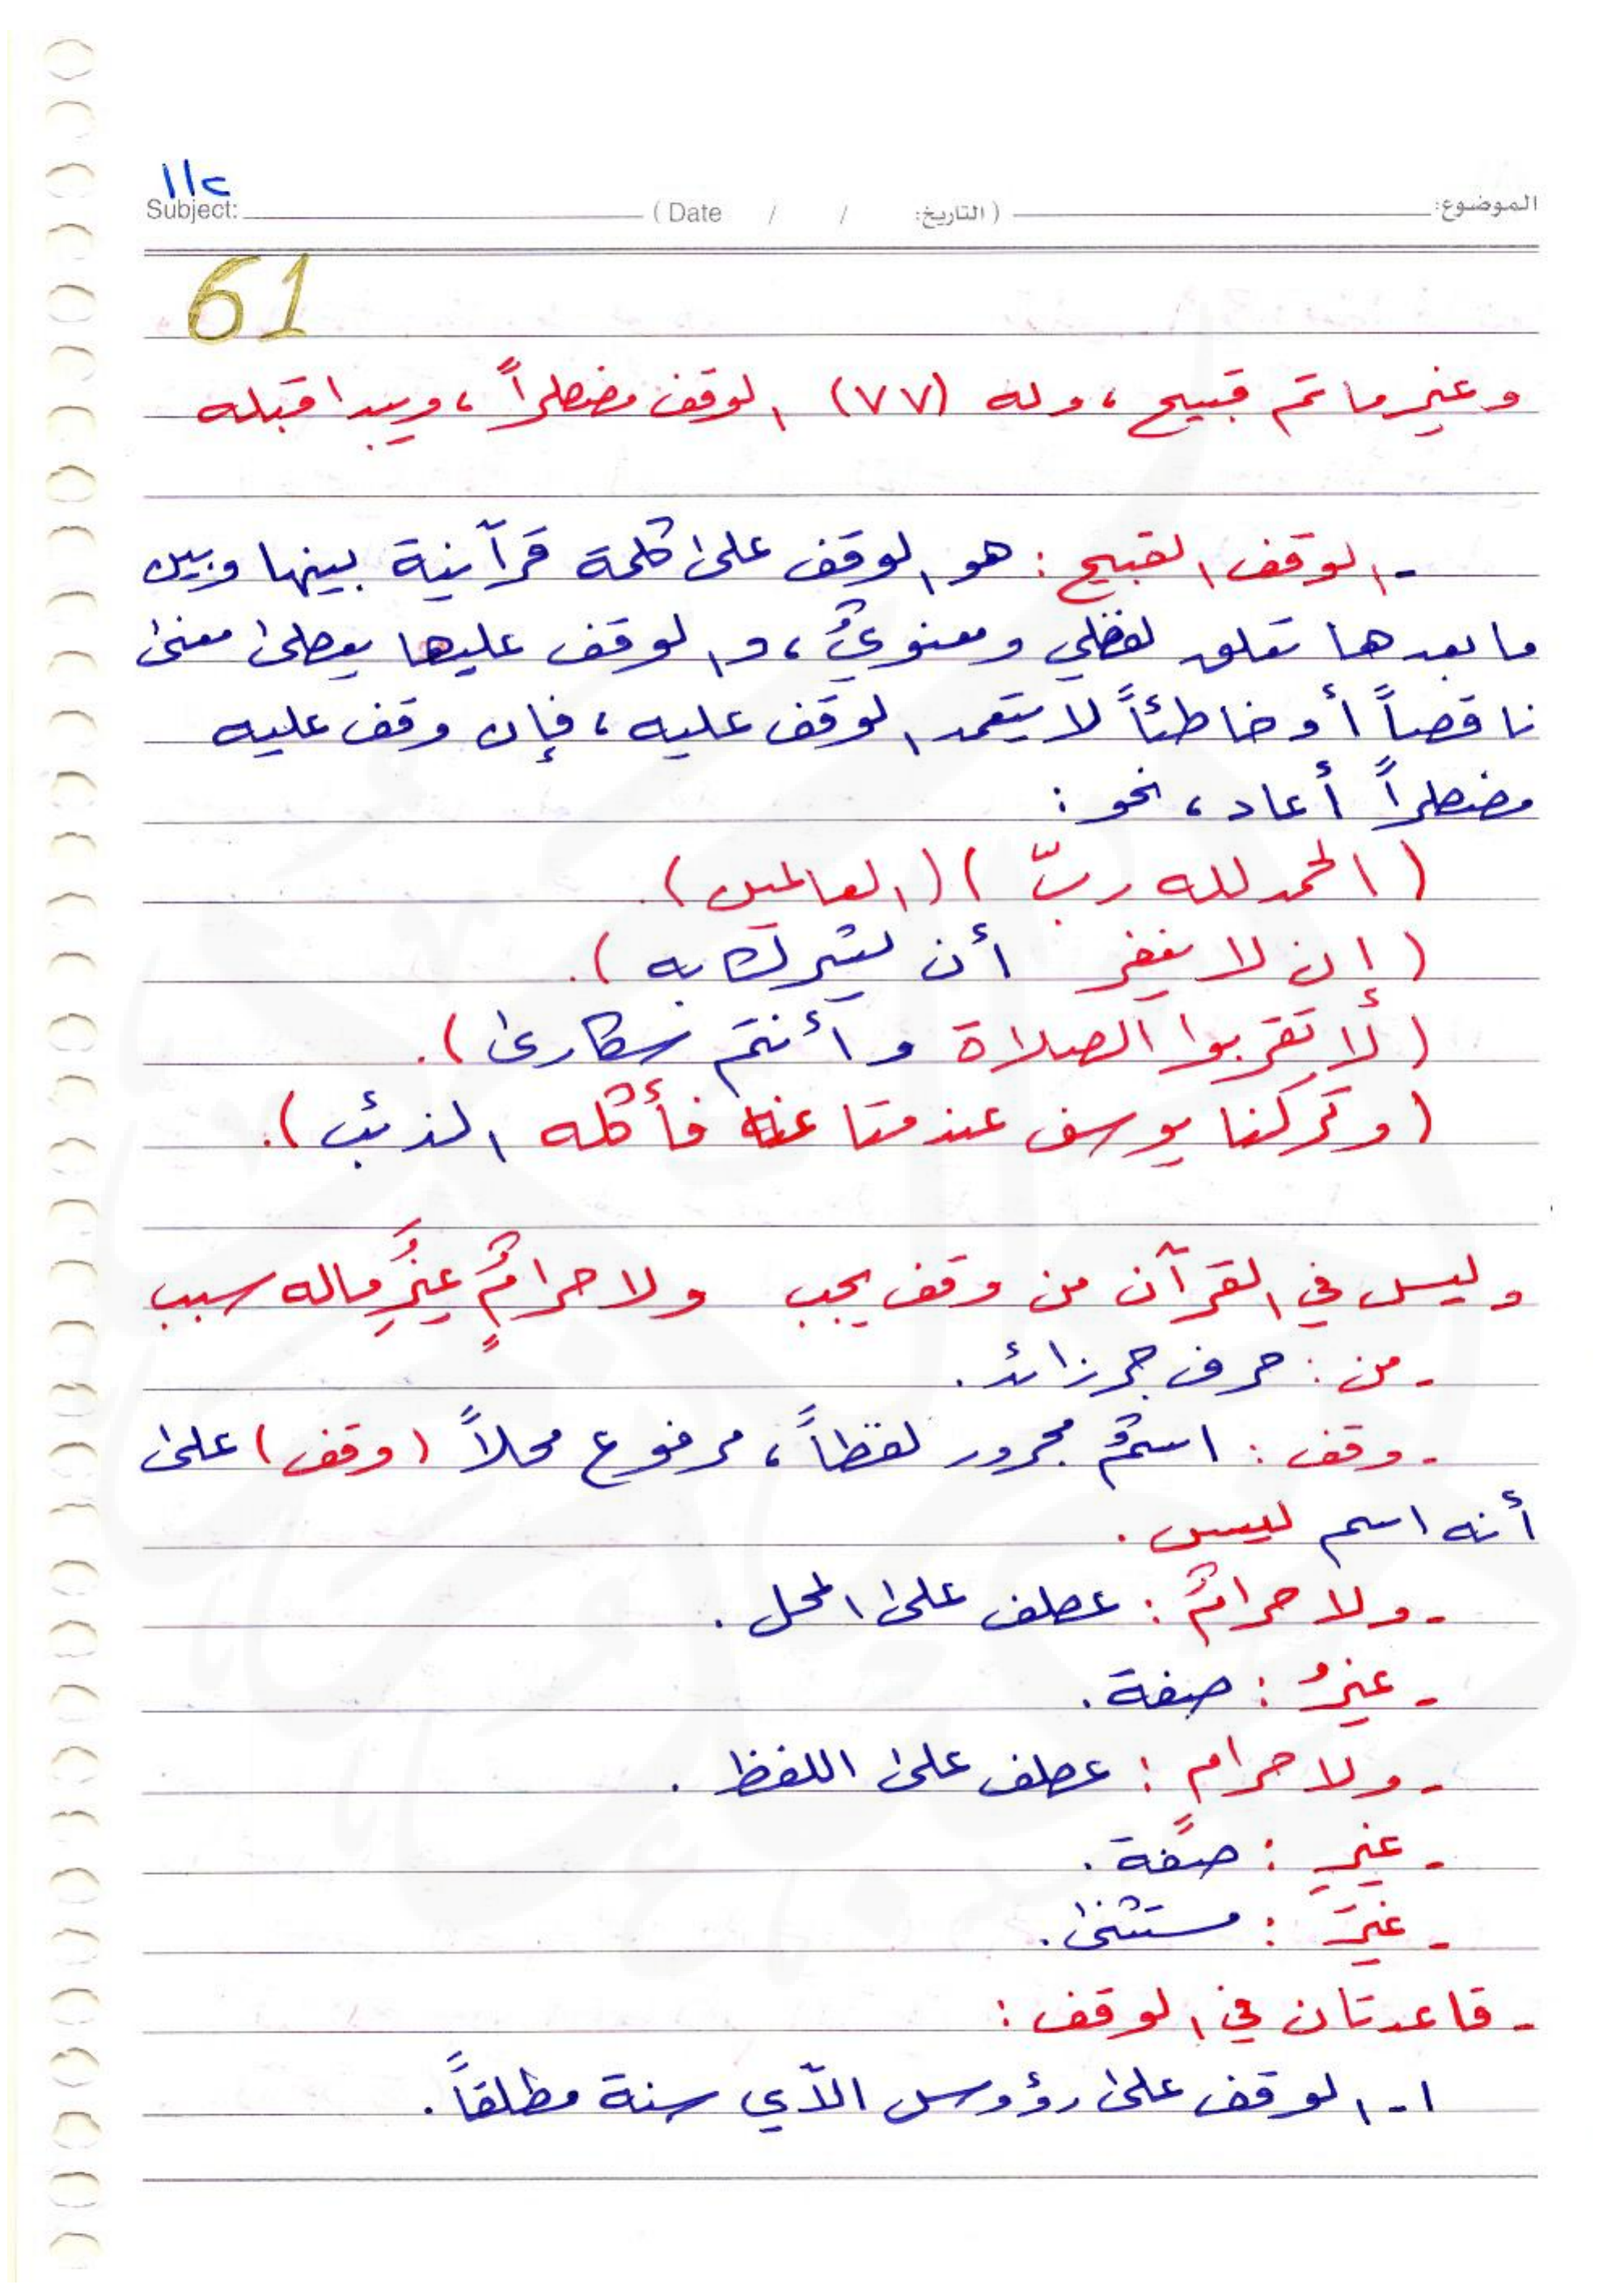 ١١٢
Subject: ( Date / / التاريخ: ) الموضوع:
61
وغير ما تم قبيح، وله (٧٧) الوقف مضطراً، ويبدا قبله
- الوقف القبيح : هو الوقف على كلمة قرآنية بينها وبين
ما بعدها تعلق لفظي ومعنويٌ، والوقف عليها يعطي معنى
ناقصاً أو خاطئاً لا يتعمد الوقف عليه، فإن وقف عليه
مضطراً أعاد، نحو :
( الحمد لله ربّ ) ( العالمين ).
( إن لا يغفر أن يشرك به ).
( لا تقربوا الصلاة وأنتم سكارى ).
( وتركنا يوسف عند متاعنا فأكله الذئب ).
وليس في القرآن من وقف يجب ولا حرامٌٍ غيرَُِ ماله سبب
- من : حرف جر زائد.
- وقف : اسمٌ مجرور لفظاً، مرفوع محلاً ( وقف ) على
أنه اسم ليس .
- ولا حرامٌ : عطف على المحل .
- غيرُ : صفة .
- ولا حرامٍ : عطف على اللفظ .
- غيرِ : صفة .
- غيرَ : مستثنى .
- قاعدتان في الوقف :
١- الوقف على رؤوس الآي سنة مطلقاً .